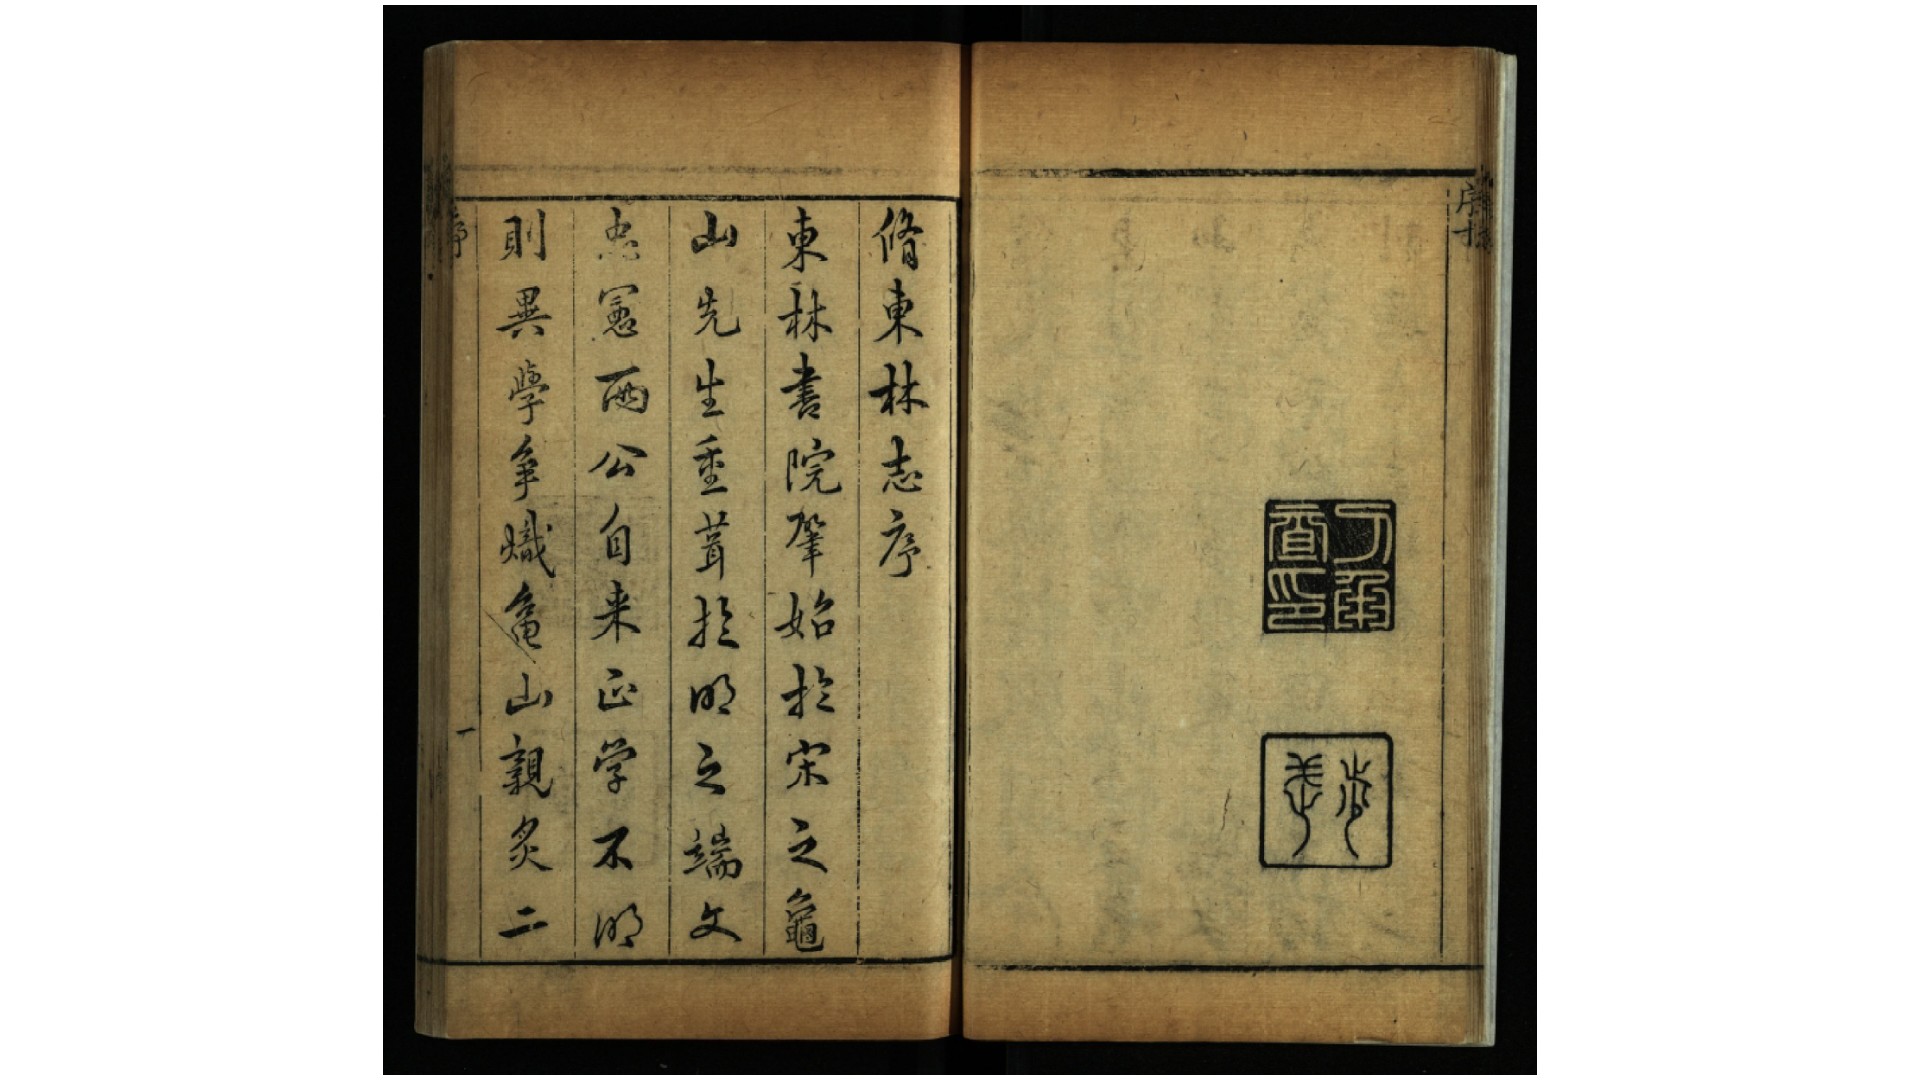 序
脩東林志序
東林書院肇始於宋之龜
山先生重葺於明之端文
忠憲两公自来正学不明
則異學爭熾亀山親炙二
序
一